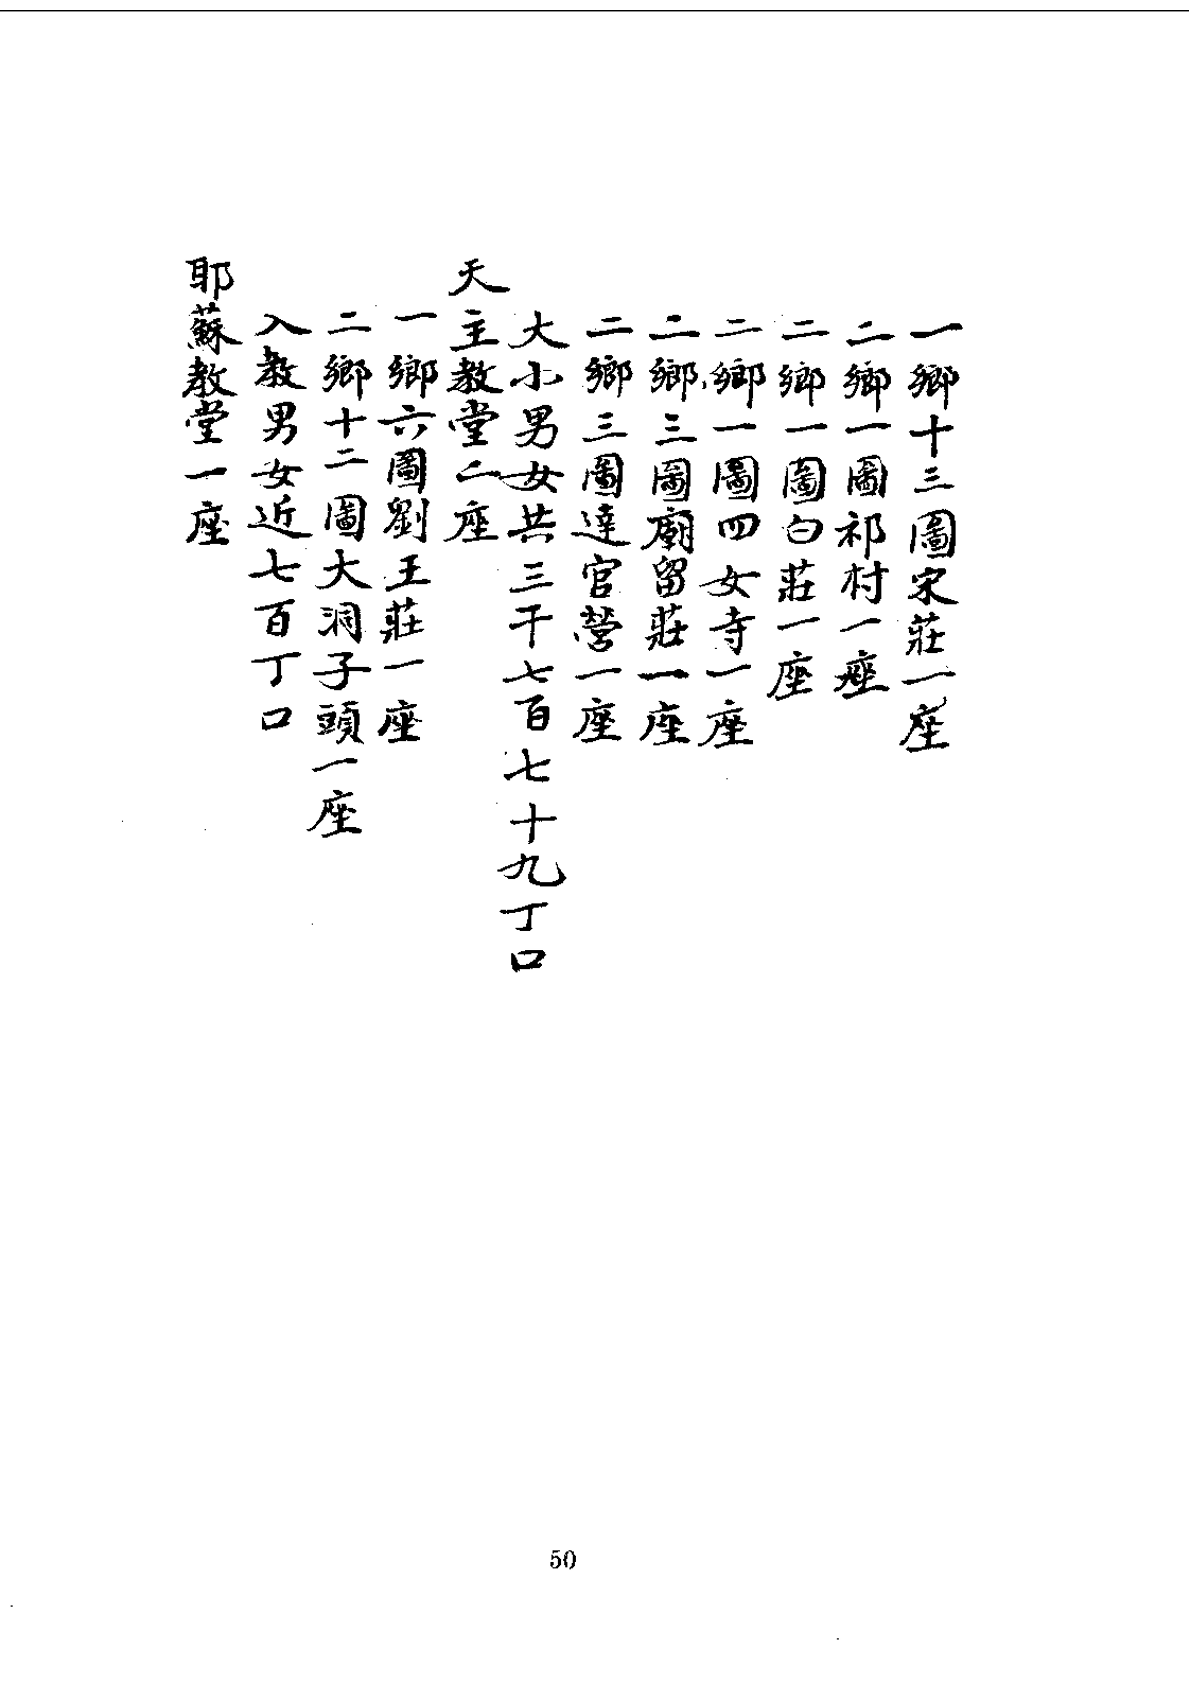 一鄉十三圖宋莊一座
二鄉一圖祁村一座
二鄉一圖白莊一座
二鄉一圖四女寺一座
二鄉三圖廟留莊一座
二鄉三圖達官營一座
大小男女共三千七百七十九丁口
天主教堂二座
一鄉六圖劉王莊一座
二鄉十二圖大洞子頭一座
入教男女近七百丁口
耶蘇教堂一座
50